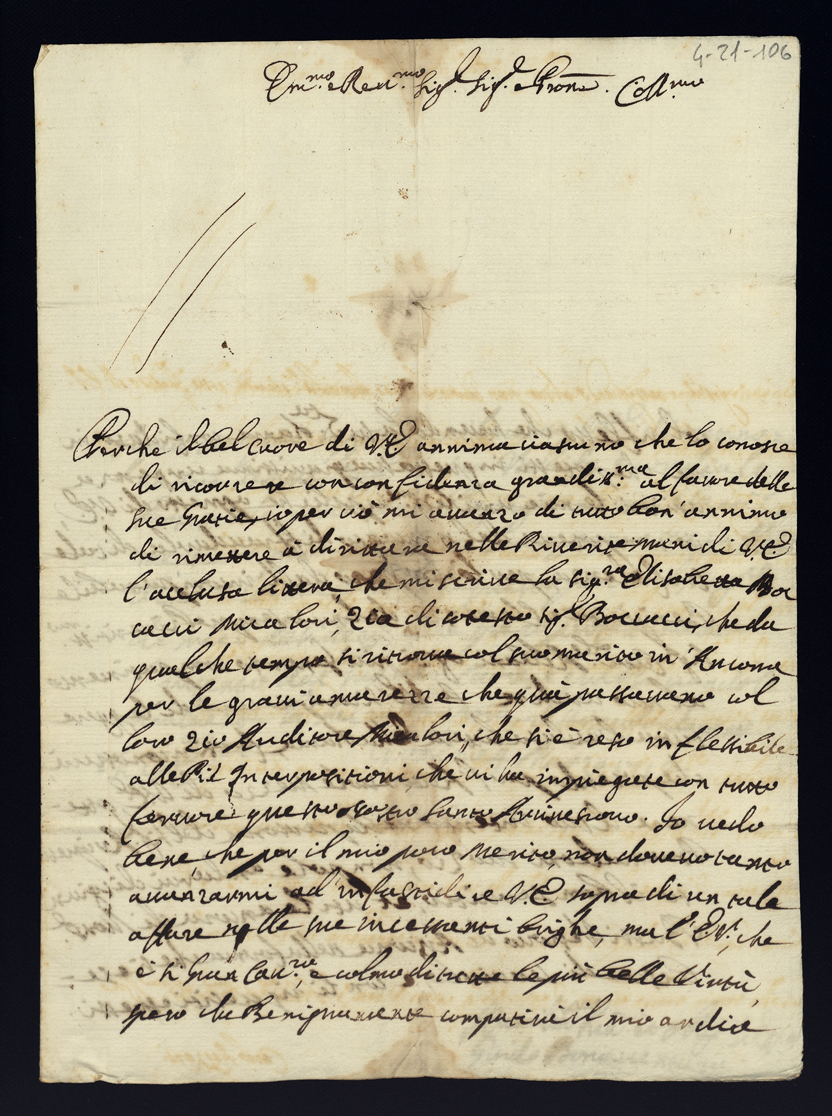 4-21-106
Em.mo e Rev.mo Sig.r Sig.r e Prone Coll.mo
Perche il bel cuore di V.E. annima ciascuno che lo conosce
di ricorrere con confidenza grandiss.ma al favore delle
sue Grazie, io per ciò mi avanzo di tutto bon'annimo
di rimettere à dirittura nelle Riverite mani di V.E.
l'acclusa littera, che mi scrive la Sig.ra Elisabetta Boc
cacci Micalori, Zia di cotesto Sig.r Boccacci, che da
qualche tempo si ritrova col suo marito in Ancona
per le gravi amarezze che quì passavano col
loro Zio Auditore Micalori, che si è reso inflessibile
alle Più Interpositioni, che vi ha impiegate con tutto
fervore questo nostro Santo Arcivescovo. Io vedo
bene, che per il mio poco merito, non dovevo tanto
avanzarmi ad infastidire V.E. sopra di un tale
affare nelle sue incessanti brighe, ma l'E.V., che
è sì Gran Cav.re, e colmo di tutte le più belle Virtù,
spero che Benignamente compatirà il mio ardire